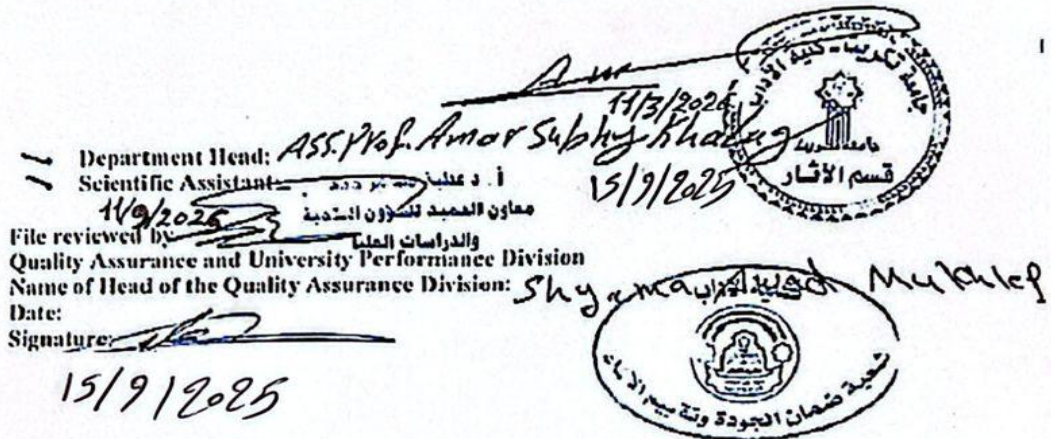 11/3/2026
Department Head: Ass. Prof. Amar Subhy Khalug
15/9/2025
Scientific Assistant:
أ. د
معاون العميد للشؤون العلمية
والدراسات العليا
11/9/2025
File reviewed by
Quality Assurance and University Performance Division
Name of Head of the Quality Assurance Division: Shyma Mukhlef
Date:
Signature:
15/9/2025
جامعة تكريت - كلية الآداب
قسم الآثار
شعبة ضمان الجودة وتقييم الأداء